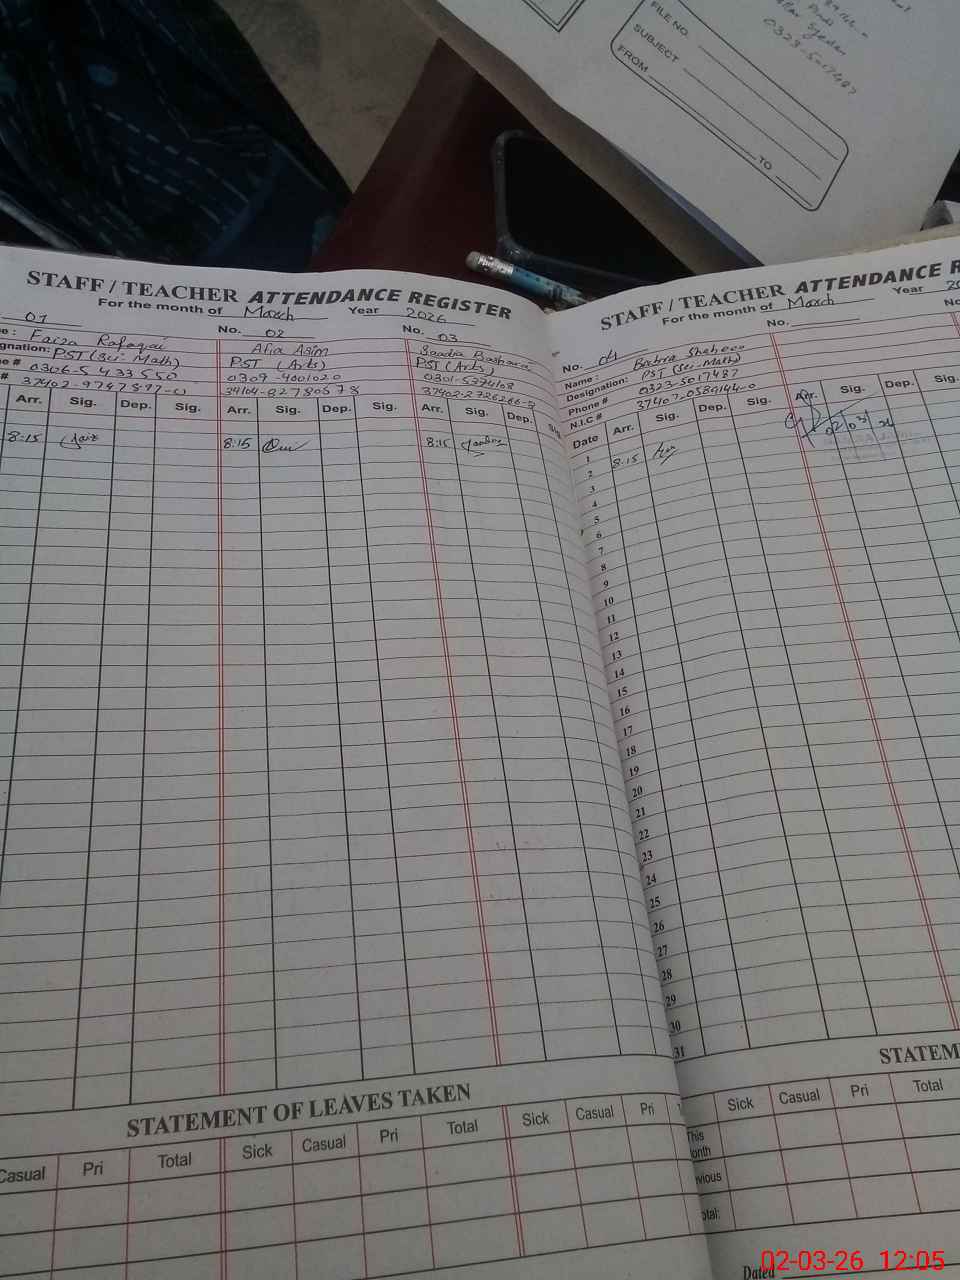 FILE NO.
SUBJECT
FROM
TO
0323-5017487
STAFF / TEACHER ATTENDANCE REGISTER
For the month of March Year 2026
01 No. 02 No. 03
Faiza
Afia Asim
Saadia
PST (Sci. Math) PST (Arts) PST (Arts)
0306-5433550
Arr. Sig. Dep. Sig. Arr. Sig. Dep. Sig. Arr. Sig. Dep. Sig.
8:15 8:15 8:15
STATEMENT OF LEAVES TAKEN
Casual Pri Total Sick Casual Pri Total Sick Casual Pri
STAFF / TEACHER ATTENDANCE R
For the month of March Year 20
No. 04 No.
Name: Bushra Shaheen
Designation: PST (Sci. Math)
Phone # 0323-5017487
N.I.C #
Date Arr. Sig. Dep. Sig. Arr. Sig. Dep. Sig.
1
2 8:15
3
4
5
6
7
8
9
10
11
12
13
14
15
16
17
18
19
20
21
22
23
24
25
26
27
28
29
30
31
02/03/26
STATEM
Sick Casual Pri Total
This
onth
vious
otal:
Dated
02-03-26 12:05